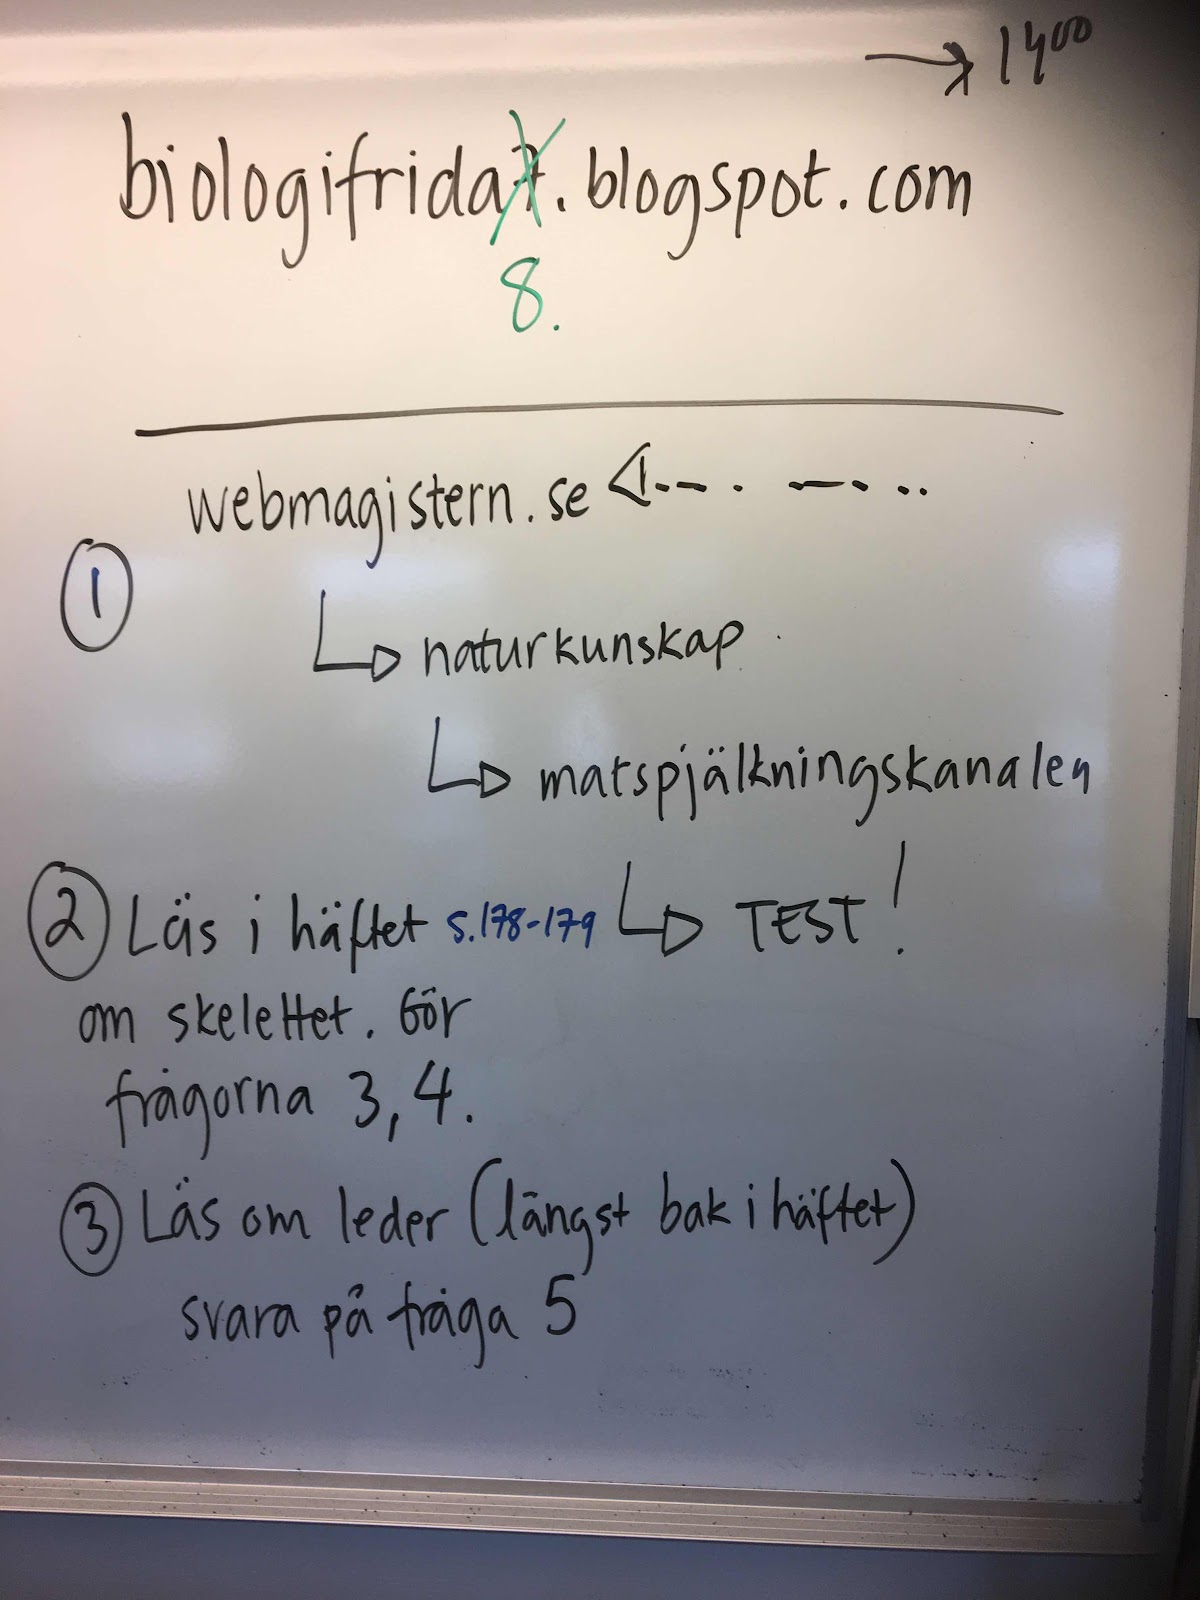 → 14⁰⁰
biologifrida7.blogspot.com
8.
webmagistern.se
1
naturkunskap
matspjälkningskanalen
2 Läs i häftet s.178-179 TEST!
om skelettet. Gör
frågorna 3, 4.
3 Läs om leder (längst bak i häftet)
svara på fråga 5